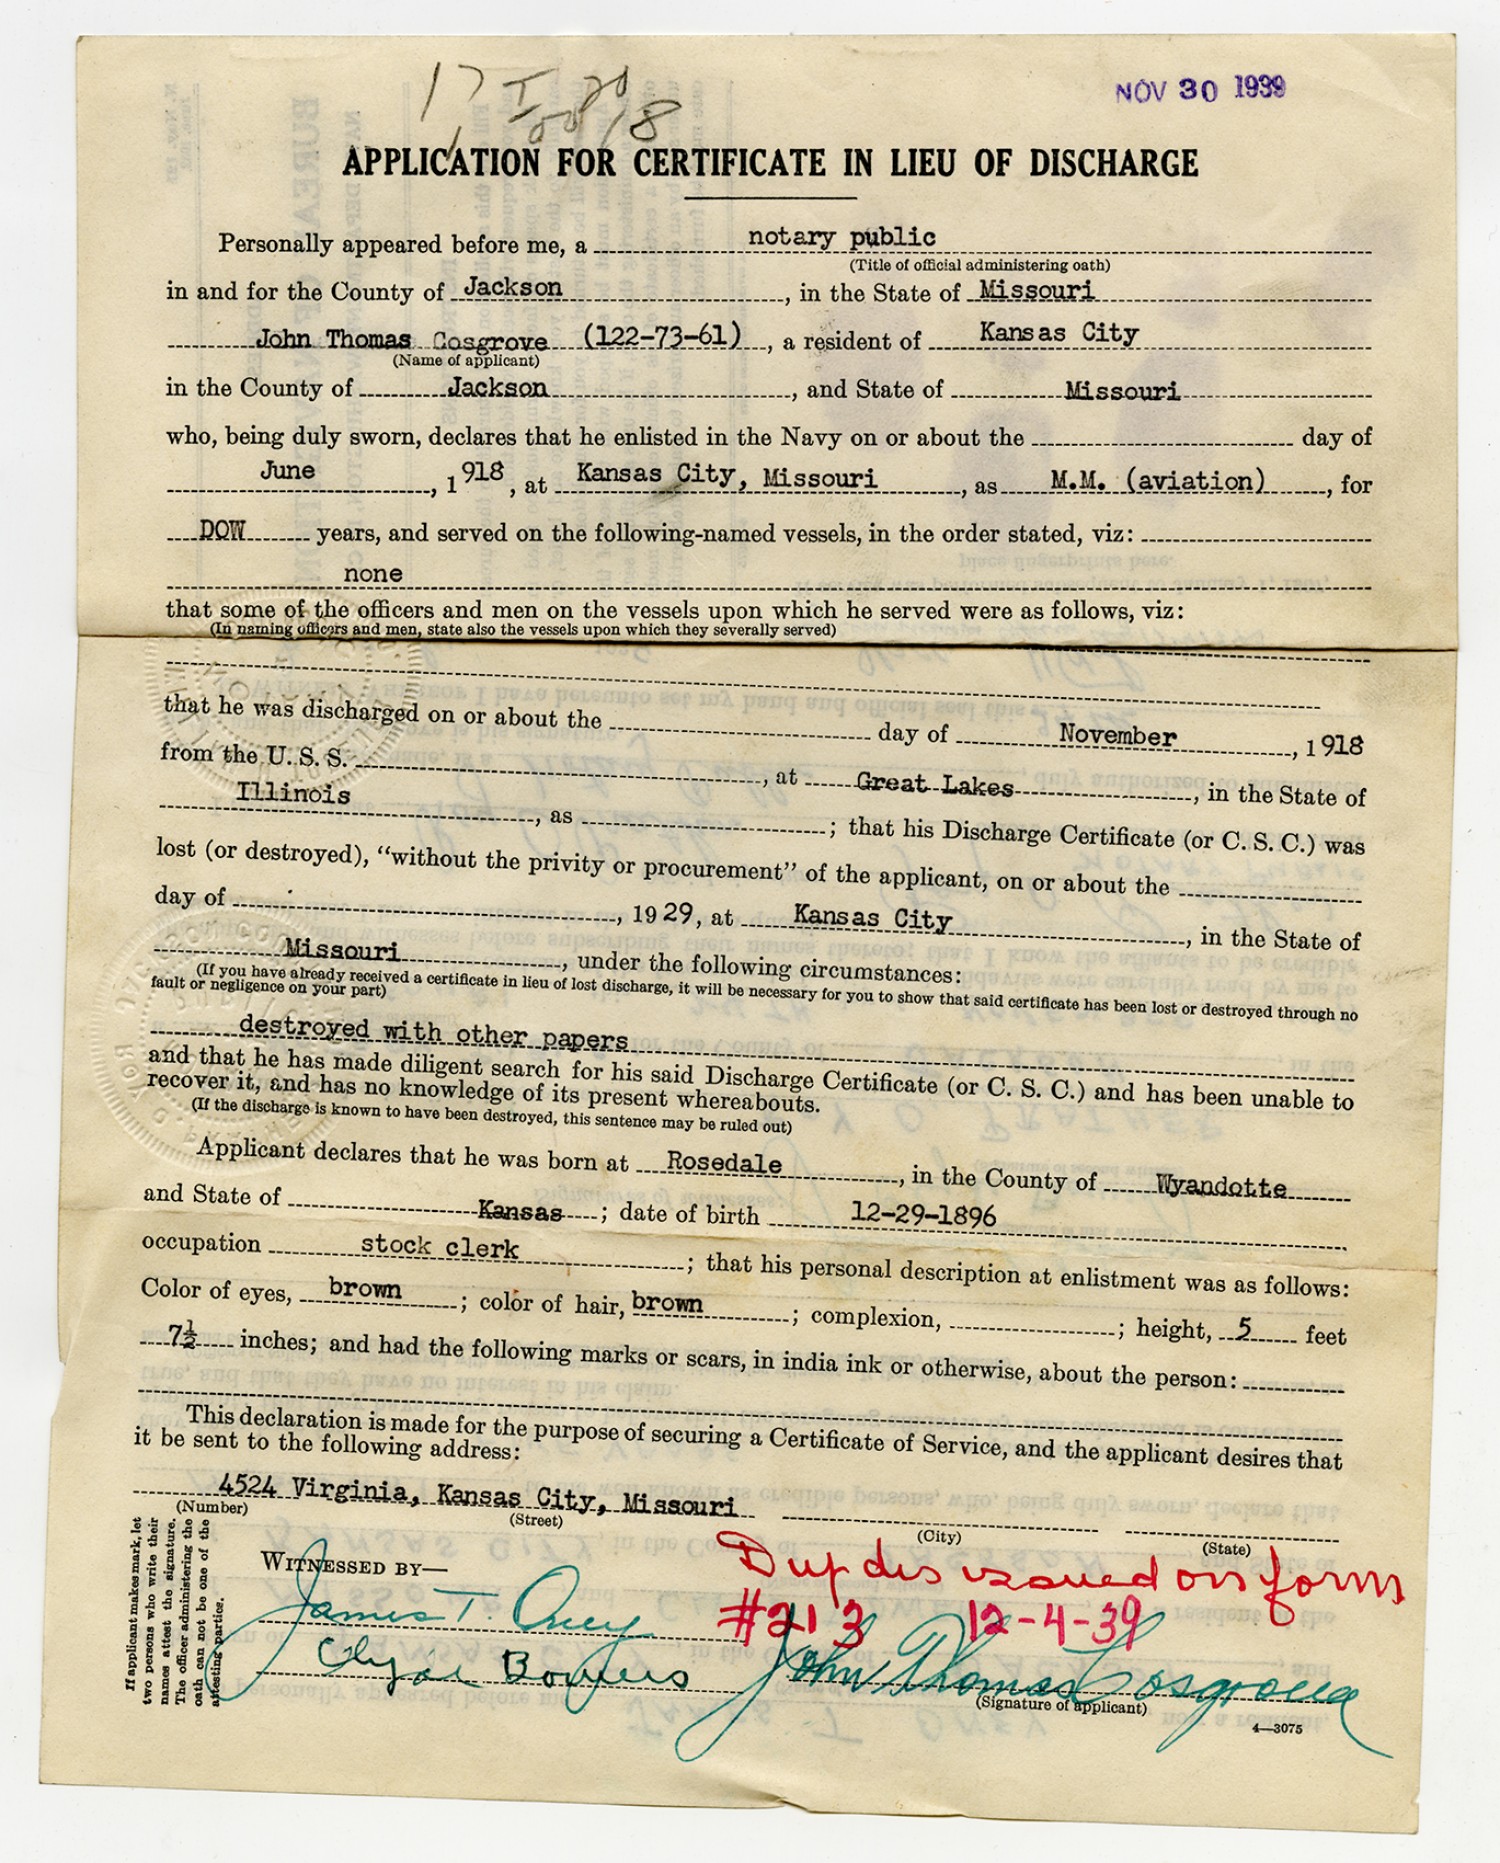 NOV 30 1939
APPLICATION FOR CERTIFICATE IN LIEU OF DISCHARGE
Personally appeared before me, a notary public
(Title of official administering oath)
in and for the County of Jackson, in the State of Missouri
John Thomas Cosgrove (122-73-61), a resident of Kansas City
(Name of applicant)
in the County of Jackson, and State of Missouri
who, being duly sworn, declares that he enlisted in the Navy on or about the day of
June, 1918, at Kansas City, Missouri, as M.M. (aviation), for
DOW years, and served on the following-named vessels, in the order stated, viz:
none
that some of the officers and men on the vessels upon which he served were as follows, viz:
(In naming officers and men, state also the vessels upon which they severally served)
that he was discharged on or about the day of November, 1918
from the U. S. S. , at Great Lakes, in the State of
Illinois, as ; that his Discharge Certificate (or C. S. C.) was
lost (or destroyed), “without the privity or procurement” of the applicant, on or about the
day of , 1929, at Kansas City, in the State of
Missouri, under the following circumstances:
(If you have already received a certificate in lieu of lost discharge, it will be necessary for you to show that said certificate has been lost or destroyed through no
fault or negligence on your part)
destroyed with other papers
and that he has made diligent search for his said Discharge Certificate (or C. S. C.) and has been unable to
recover it, and has no knowledge of its present whereabouts.
(If the discharge is known to have been destroyed, this sentence may be ruled out)
Applicant declares that he was born at Rosedale, in the County of Wyandotte
and State of Kansas; date of birth 12-29-1896
occupation stock clerk; that his personal description at enlistment was as follows:
Color of eyes, brown; color of hair, brown; complexion, ; height, 5 feet
7½ inches; and had the following marks or scars, in india ink or otherwise, about the person:
This declaration is made for the purpose of securing a Certificate of Service, and the applicant desires that
it be sent to the following address:
4524 Virginia, Kansas City, Missouri
(Number) (Street) (City) (State)
If applicant makes mark, let
two persons who write their
names attest the signature.
The officer administering the
oath can not be one of the
attesting parties.
WITNESSED BY—
James T. Oney
Clyde Bowers
Dup dis issued on form
#213 12-4-39
John Thomas Cosgrove
(Signature of applicant)
4—3075